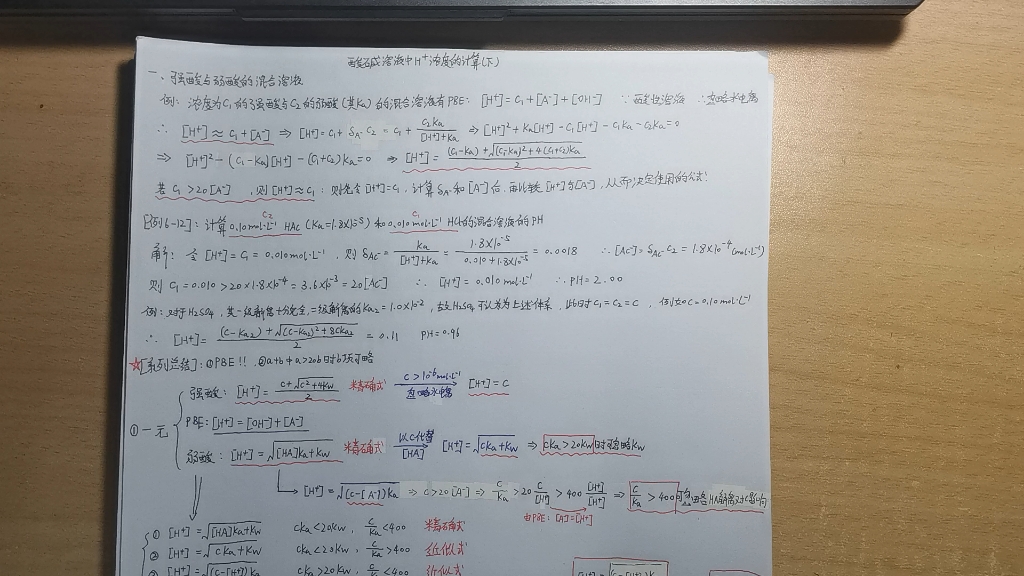 酸碱溶液中H⁺浓度的计算(下)
一、强酸与弱酸的混合溶液
例: 浓度为C₁的强酸与C₂的弱酸(其Ka)的混合溶液有PBE: [H⁺] = C₁ + [A⁻] + [OH⁻] ∵酸性溶液 ∴忽略水电离
∴ [H⁺] ≈ C₁ + [A⁻] ⇒ [H⁺] = C₁ + δA⁻ C₂ = C₁ + C₂Ka/([H⁺]+Ka) ⇒ [H⁺]² + Ka[H⁺] - C₁[H⁺] - C₁Ka - C₂Ka = 0
⇒ [H⁺]² - (C₁-Ka)[H⁺] - (C₁+C₂)Ka = 0 ⇒ [H⁺] = ((C₁-Ka) + √((C₁-Ka)² + 4(C₁+C₂)Ka))/2
若 C₁ > 20[A⁻], 则[H⁺] ≈ C₁; 则先令[H⁺] = C₁, 计算δA⁻和[A⁻]后, 再比较[H⁺]与[A⁻], 从而决定使用的公式
[例6-12]: 计算0.10mol·L⁻¹ HAc (Ka=1.8×10⁻⁵) 和0.010mol·L⁻¹ HCl的混合溶液的PH
C₂ C₁
解: 令[H⁺] = C₁ = 0.010mol·L⁻¹, 则 δAc⁻ = Ka/([H⁺]+Ka) = 1.8×10⁻⁵/(0.010+1.8×10⁻⁵) = 0.0018 ∴[Ac⁻] = δAc⁻ C₂ = 1.8×10⁻⁴(mol·L⁻¹)
则 C₁ = 0.010 > 20×1.8×10⁻⁴ = 3.6×10⁻³ = 20[Ac⁻] ∴ [H⁺] = 0.010mol·L⁻¹ ∴ pH = 2.00
例: 对于H₂SO₄, 其一级解离十分完全, 二级解离的Ka₂ = 1.0×10⁻², 故H₂SO₄可认为为上述体系, 此时C₁ = C₂ = C, 例如C = 0.10mol·L⁻¹
∴ [H⁺] = ((C-Ka₂) + √((C-Ka₂)² + 8CKa₂))/2 = 0.11 PH=0.96
☆[系列总结]: ①PBE!! ②a+b中a>20b时b项可略
强酸: [H⁺] = (C+√(C²+4Kw))/2 精确式 C>10⁻⁶mol·L⁻¹ 忽略水电离 [H⁺] = C
①一元 PBE: [H⁺] = [OH⁻] + [A⁻]
弱酸: [H⁺] = √([HA]Ka+Kw) 精确式 以C代替[HA] [H⁺] = √(CKa+Kw) ⇒ CKa>20Kw时可忽略Kw
[H⁺] = √((C-[A⁻])Ka) ⇒ C>20[A⁻] ⇒ C/Ka > 20 C/[H⁺] > 400 [H⁺]/[H⁺] ⇒ C/Ka > 400可忽略HA解离对C影响
由PBE: [A⁻]=[H⁺]
① [H⁺] = √([HA]Ka+Kw) CKa<20Kw, C/Ka<400 精确式
② [H⁺] = √(CKa+Kw) CKa<20Kw, C/Ka>400 近似式
③ [H⁺] = √((C-[H⁺])Ka) CKa>20Kw, C/Ka<400 近似式